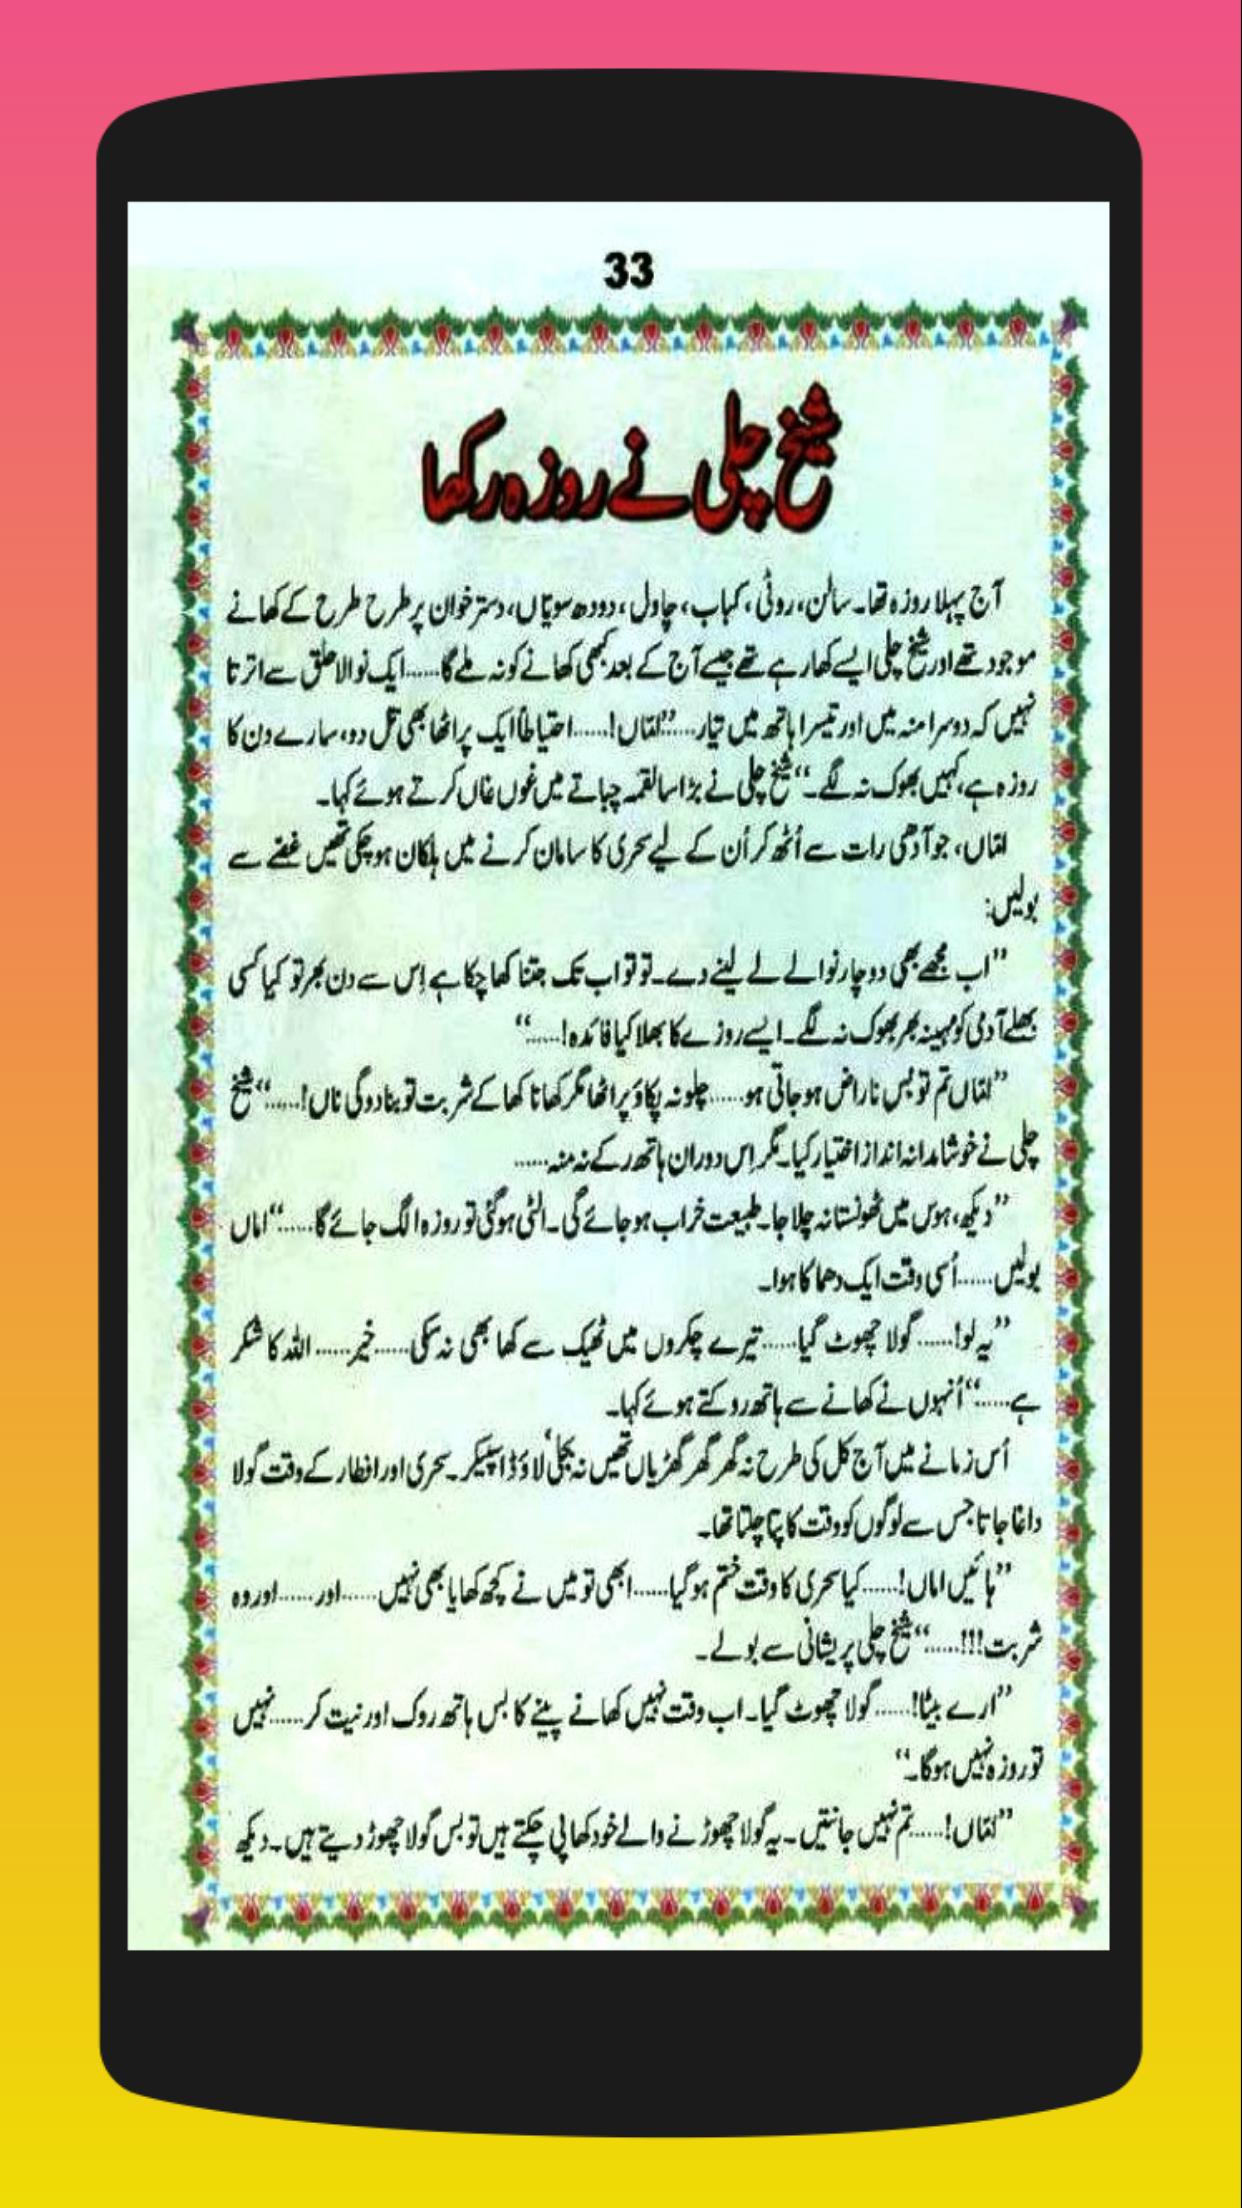 33
شیخ چلی نے روزہ رکھا
آج پہلا روزہ تھا۔ سالن، روٹی، کباب، چاول، دودھ سویّاں، دسترخوان پر طرح طرح کے کھانے
موجود تھے اور شیخ چلی ایسے کھا رہے تھے جیسے آج کے بعد کبھی کھانے کو نہ ملے گا......ایک نوالا حلق سے اترتا
نہیں کہ دوسرا منہ میں اور تیسرا ہاتھ میں تیار......”امّاں!......احتیاطاً ایک پراٹھا بھی تل دو، سارے دن کا
روزہ ہے، کہیں بھوک نہ لگے۔“ شیخ چلی نے بڑا سا لقمہ چباتے میں غوں غاں کرتے ہوئے کہا۔
امّاں، جو آدھی رات سے اُٹھ کر اُن کے لیے سحری کا سامان کرنے میں ہلکان ہو چکی تھیں غصّے سے
بولیں:
”اب مجھے بھی دو چار نوالے لے لینے دے۔ تو تو اب تک جتنا کھا چکا ہے اِس سے دن بھر تو کیا کسی
بھلے آدمی کو مہینہ بھر بھوک نہ لگے۔ ایسے روزے کا بھلا کیا فائدہ!......“
”امّاں تم تو بس ناراض ہو جاتی ہو......چلو نہ پکاؤ پراٹھا مگر کھانا کھا کے شربت تو بنا دو گی ناں!......“ شیخ
چلی نے خوشامدانہ انداز اختیار کیا۔ مگر اِس دوران ہاتھ رکے نہ منہ......
”دیکھ، ہوس میں ٹھونستا نہ چلا جا۔ طبیعت خراب ہو جائے گی۔ الٹی ہو گئی تو روزہ الگ جائے گا......“ اماں
بولیں......اُسی وقت ایک دھماکا ہوا۔
”یہ لو!......گولا چھوٹ گیا......تیرے چکروں میں ٹھیک سے کھا بھی نہ سکی......خیر......اللہ کا شکر
ہے......“ اُنہوں نے کھانے سے ہاتھ روکتے ہوئے کہا۔
اُس زمانے میں آج کل کی طرح نہ گھر گھر گھڑیاں تھیں نہ بجلی، لاؤڈ اسپیکر۔ سحری اور افطار کے وقت گولا
داغا جاتا جس سے لوگوں کو وقت کا پتا چلتا تھا۔
”ہائیں اماں!......کیا سحری کا وقت ختم ہو گیا......ابھی تو میں نے کچھ کھایا بھی نہیں......اور......اور وہ
شربت!!!......“ شیخ چلی پریشانی سے بولے۔
”ارے بیٹا!......گولا چھوٹ گیا۔ اب وقت نہیں کھانے پینے کا بس ہاتھ روک اور نیت کر......نہیں
تو روزہ نہیں ہو گا۔“
”امّاں!......تم نہیں جانتیں۔ یہ گولا چھوڑنے والے خود کھا پی چکتے ہیں تو بس گولا چھوڑ دیتے ہیں۔ دیکھ